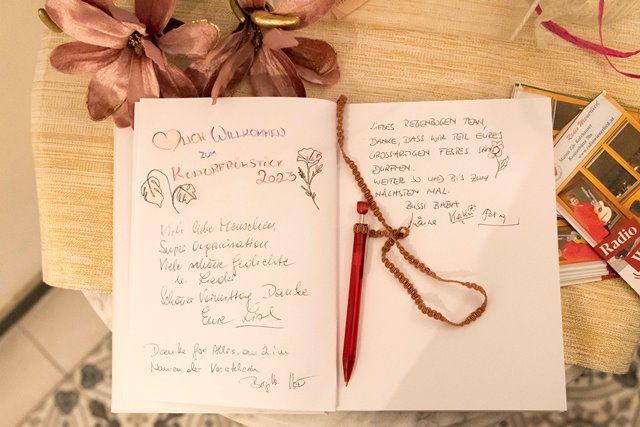 ♡LICH WILLKOMMEN
ZUM
KULTURFRÜHSTÜCK
2023
Viele liebe Menschen,
Super Organisation
Viele schöne Gedichte
u. Lieder
Schöner Vormittag Danke
Eure Lisl
Danke für Alles, an 2 im
Namen der Vorsteherin
LIEBES REGENBOGEN TEAM,
DANKE, DASS WIR TEIL EURES
GROSSARTIGEN FESTES SEIN
DURFTEN.
WEITER SO UND BIS ZUM
NÄCHSTEN MAL.
BUSSI BABA
Radio Wienerlied
Radio